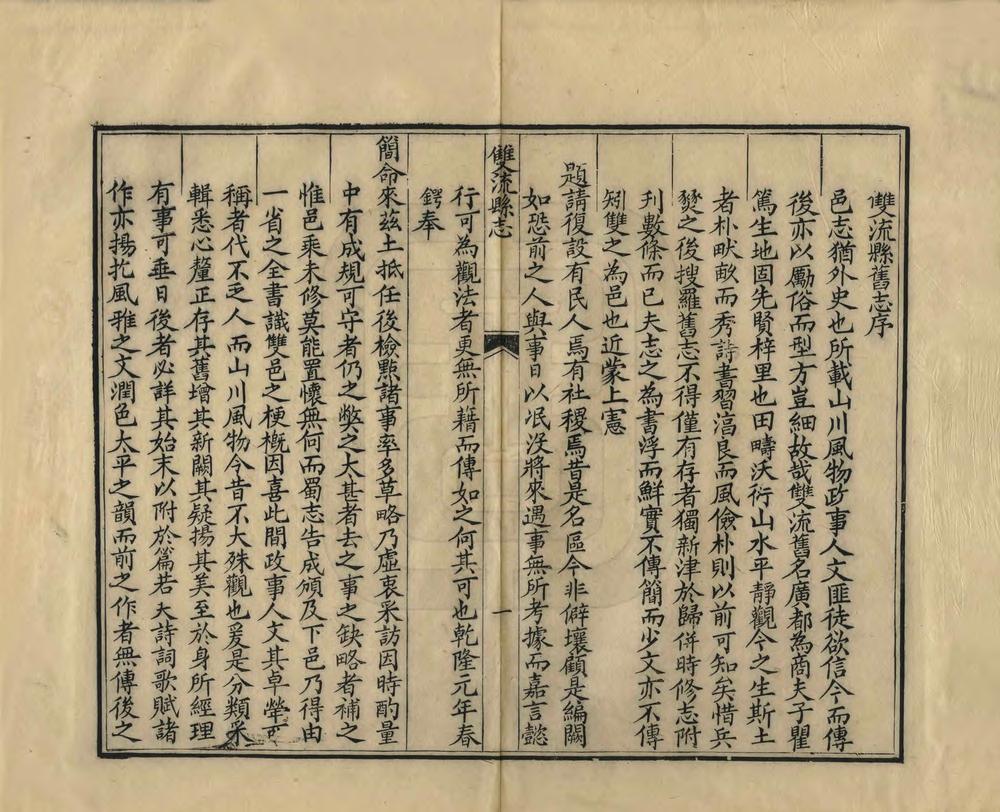 雙流縣舊志序
邑志猶外史也所載山川風物政事人文匪徒欲信今而傳
後亦以勵俗而型方豈細故哉雙流舊名廣都為商夫子瞿
篤生地固先賢梓里也田疇沃衍山水平靜觀今之生斯土
者朴畎畝而秀詩書習淄良而風儉朴則以前可知矣惜兵
燹之後搜羅舊志不得僅有存者獨新津於歸併時修志附
刊數條而已夫志之為書浮而鮮實不傳簡而少文亦不傳
矧雙之為邑也近蒙上憲
題請復設有民人焉有社稷焉昔是名區今非僻壤顧是編闕
如恐前之人與事日以泯沒將來遇事無所考據而嘉言懿
雙流縣志
一
行可為觀法者更無所藉而傳如之何其可也乾隆元年春
鍔奉
簡命來茲土抵任後檢點諸事率多草略乃虛衷采訪因時酌量
中有成規可守者仍之弊之大甚者去之事之缺略者補之
惟邑乘未修莫能置懷無何而蜀志告成頒及下邑乃得由
一省之全書識雙邑之梗概因喜此間政事人文其卓犖可
稱者代不乏人而山川風物今昔不大殊觀也爰是分類采
輯悉心釐正存其舊增其新闕其疑揚其美至於身所經理
有事可垂日後者必詳其始末以附於篇若夫詩詞歌賦諸
作亦揚扢風雅之文潤色太平之韻而前之作者無傳後之